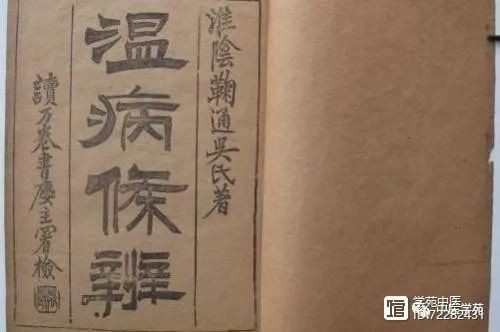 淮陰鞠通吳氏著
温病條辨
讀万卷書廔主署檢
学苑中医